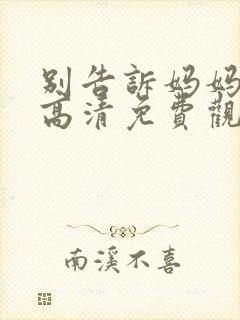 別告訴媽媽
高清免費觀
南溪不喜